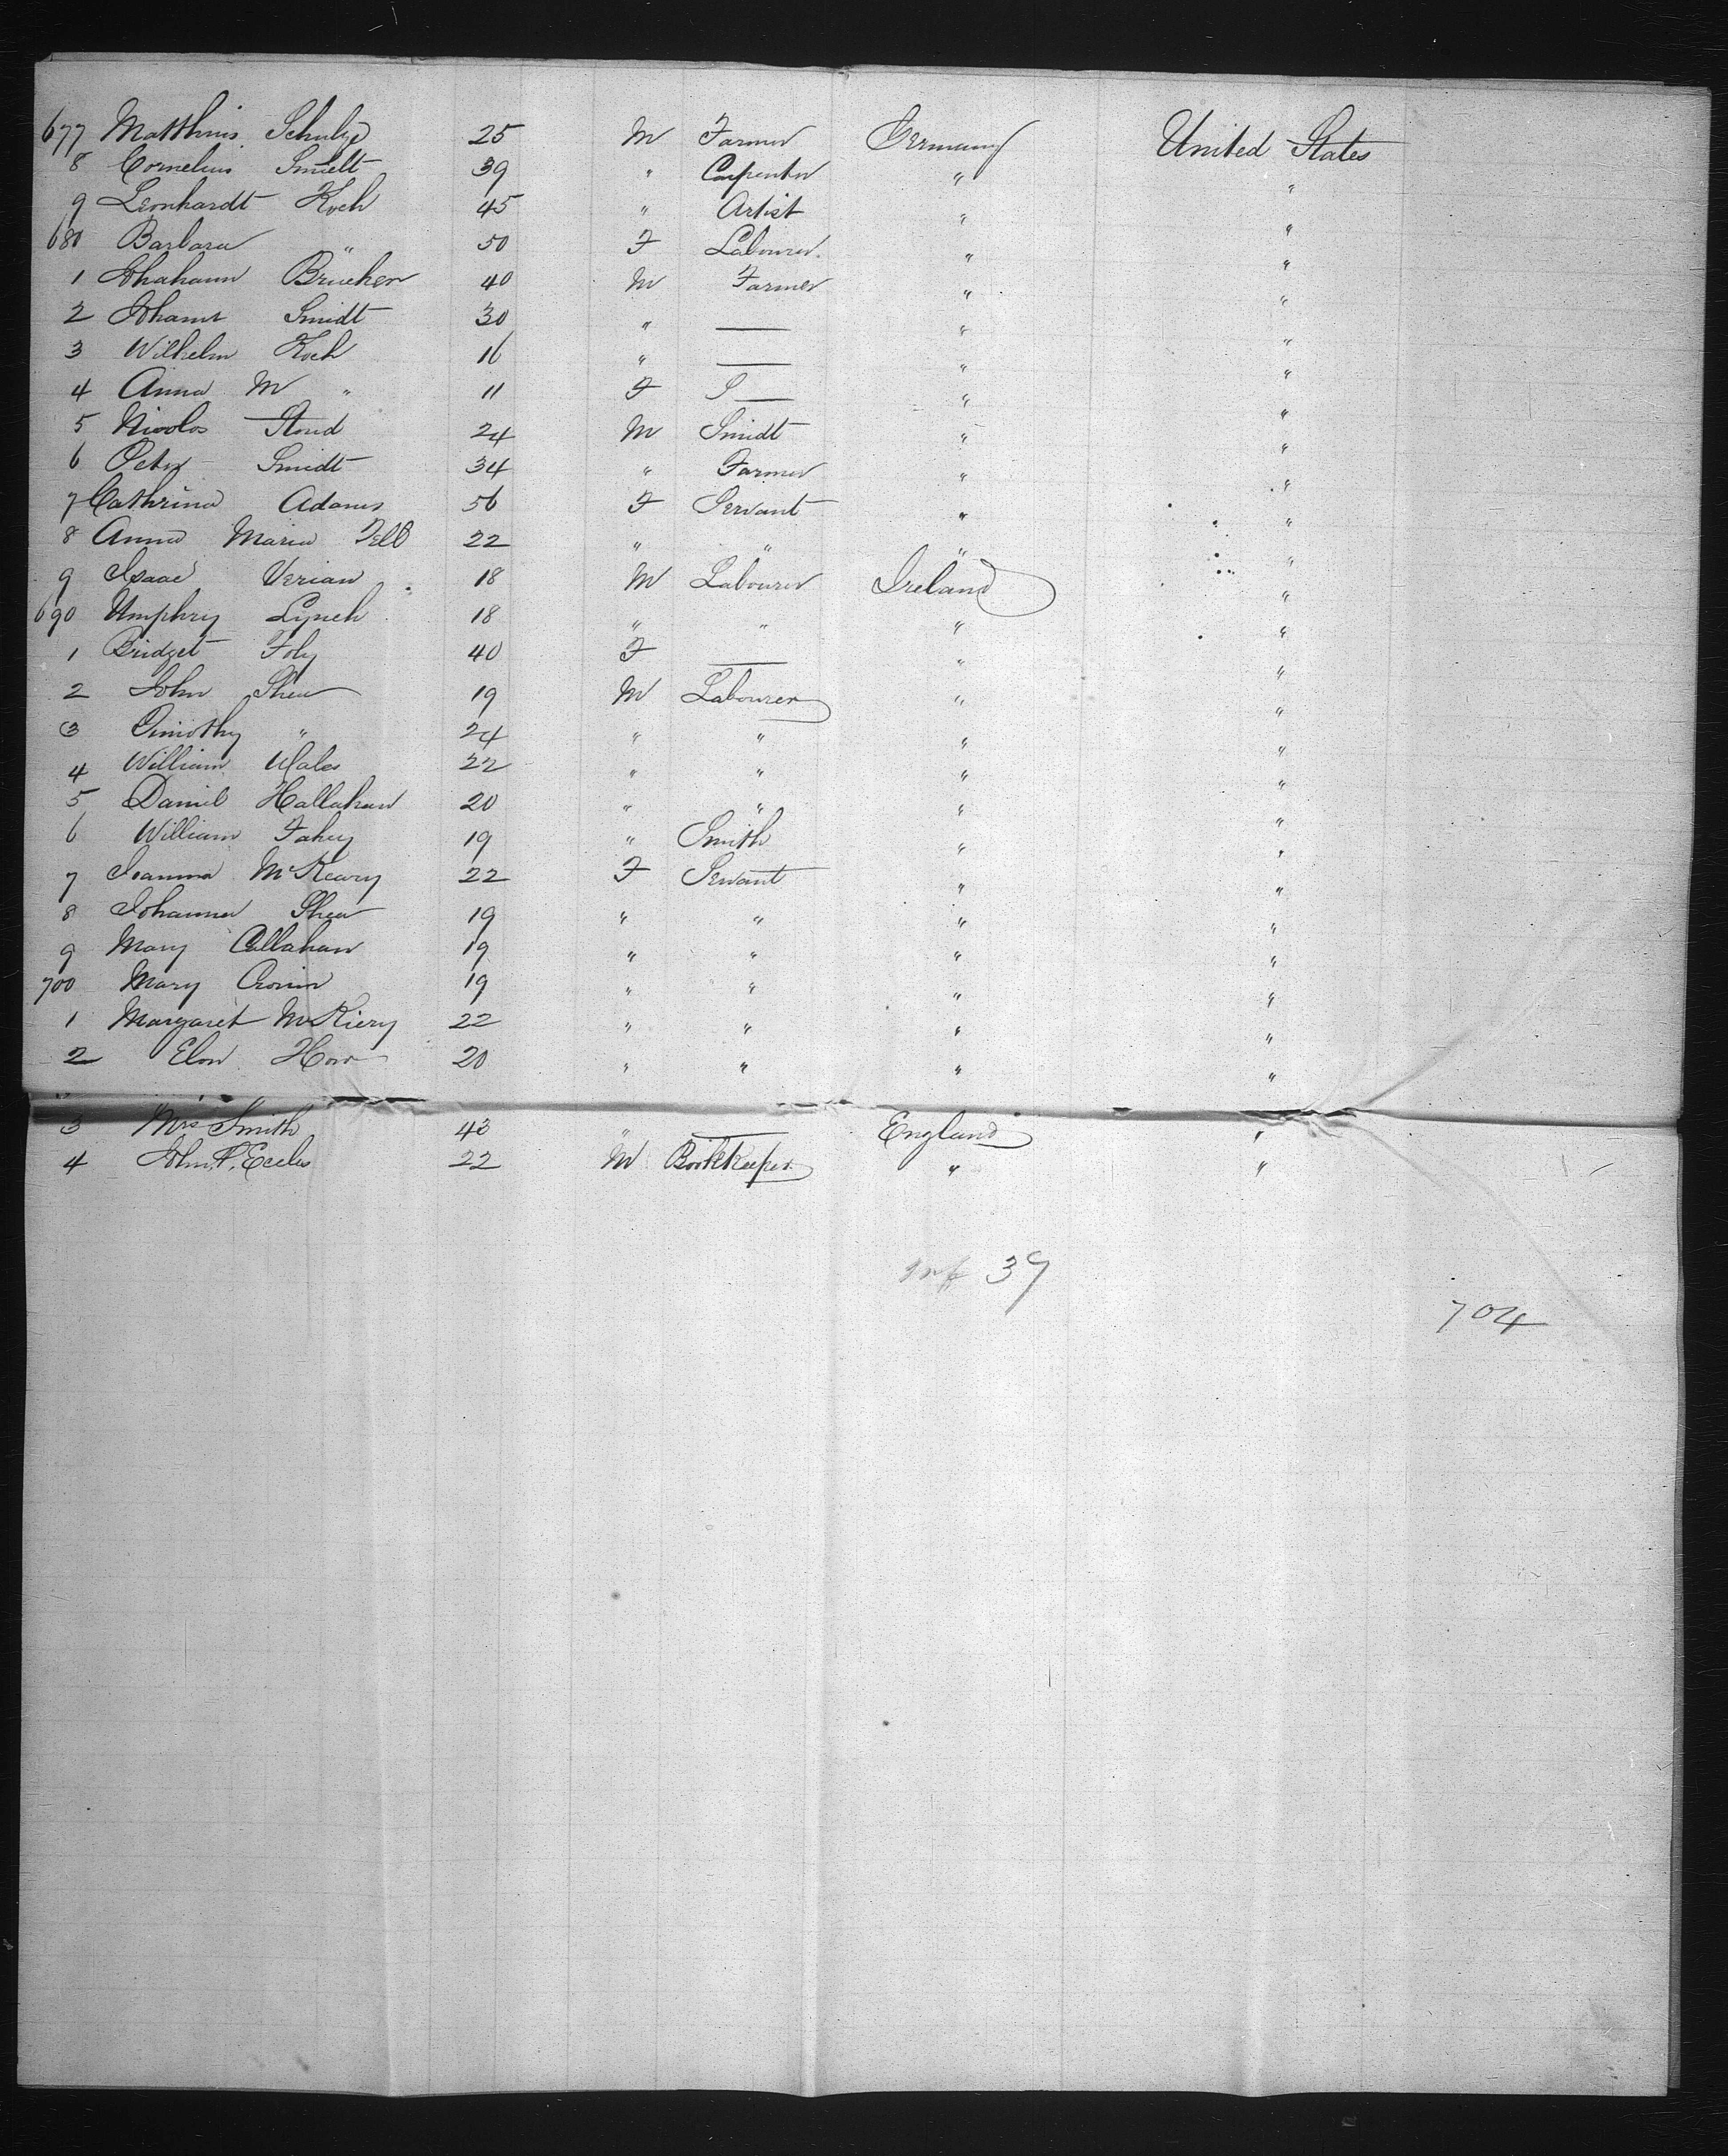 677 Matthius Schulze 25 M Farmer Germany United States
8 Cornelius Smidt 39 " Carpenter " "
9 Leonhardt Koch 45 " Artist " "
680 Barbara " 50 F Labourer " "
1 Johahann Brucker 40 M Farmer " "
2 Johann Smidt 30 " — " "
3 Wilhelm Koch 16 " — " "
4 Anna M " 11 F S — " "
5 Nicolos 24 M Smidt " "
6 Peter Smidt 34 " Farmer " "
7 Cathrina Adams 56 F Servant " "
8 Anna Maria Fell 22 " " " "
9 Isaac Verian 18 M Labourer Ireland "
690 Umphry Lynch 18 " " " "
1 Bridget Foly 40 F — " "
2 John Shea 19 M Labourer " "
3 Timothy " 24 " " " "
4 William Wales 22 " " " "
5 Daniel Hallahan 20 " " " "
6 William Fahey 19 " Smith " "
7 Joanna McKeary 22 F Servant " "
8 Johanna Shea 19 " " " "
9 Mary Callahan 19 " " " "
700 Mary Cronin 19 " " " "
1 Margaret McKiery 22 " " " "
2 Elen 20 " " " "
3 Mrs Smith 43 " — England "
4 John F. Eccles 22 M Bookkeeper " "
Inf 39
704